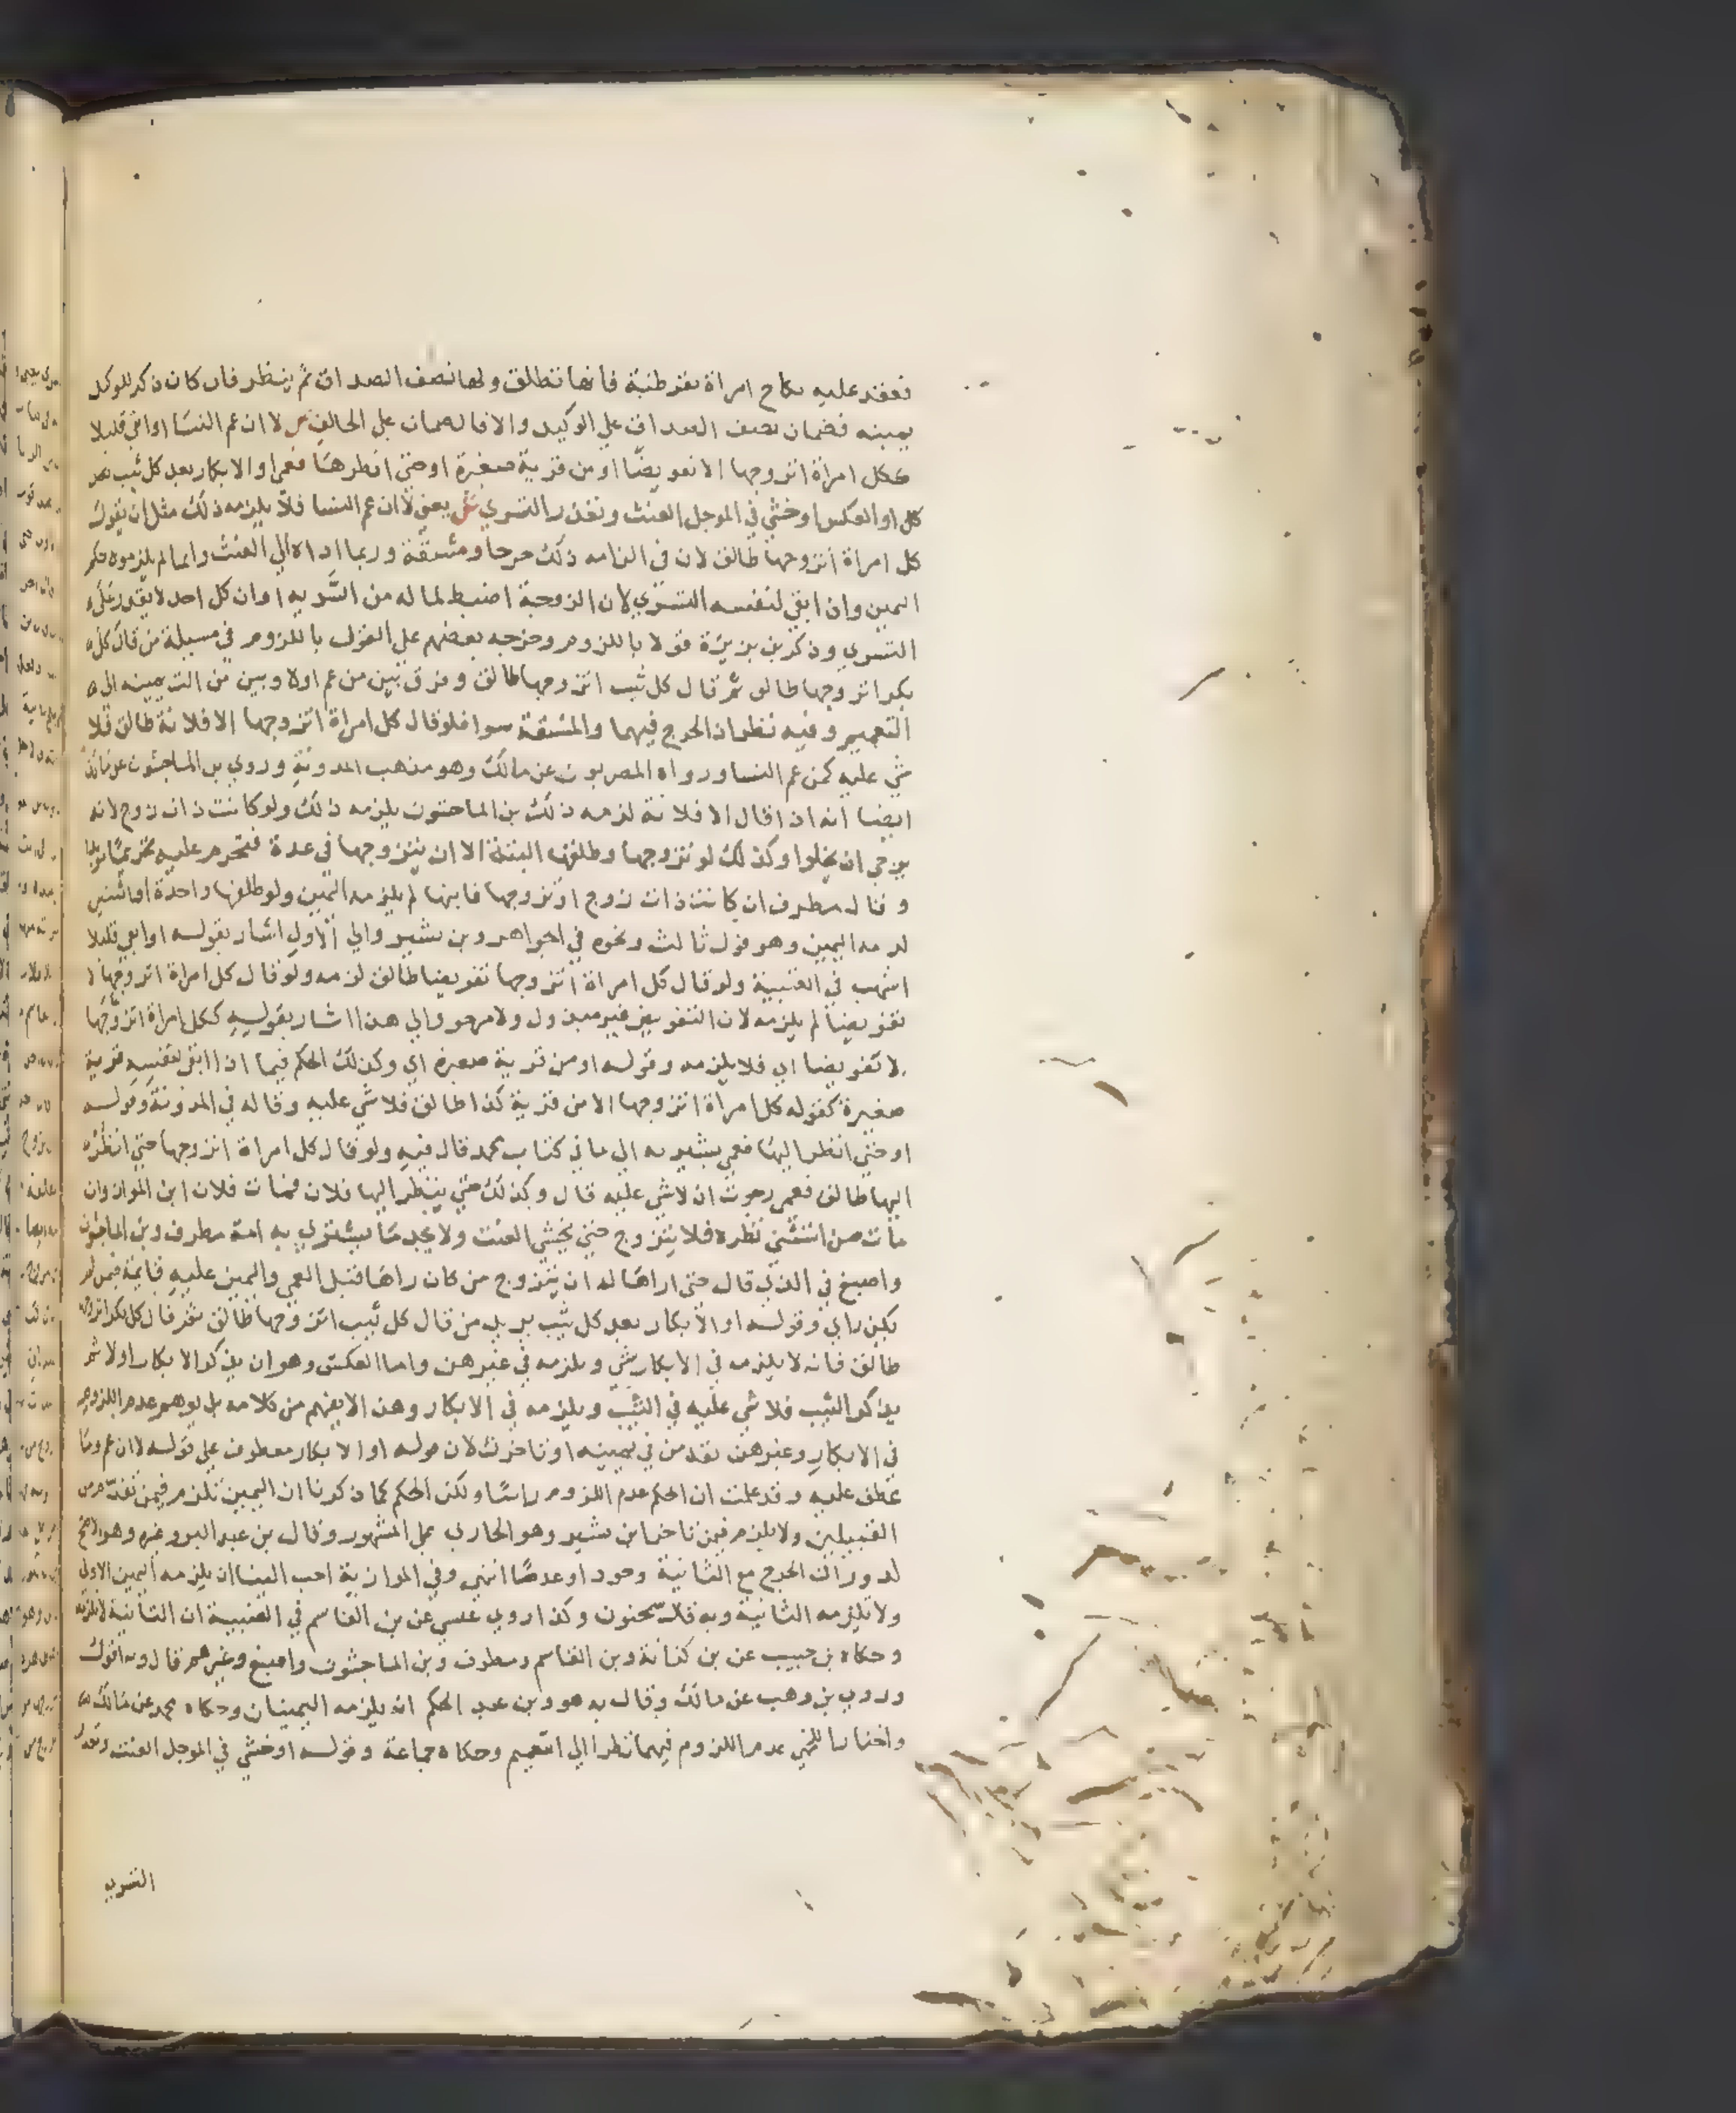 فعقد عليه نكاح امراة بقرطبة فانها تطلق ولها نصف الصداق ثم ينظر فان كان ذكر للوكيل
يمينه فضمان نصف الصداق علي الوكيل والا فالضمان علي الحالف ص لا ان عم النسا او ابقي قليلا
ككل امراة اتزوجها الا تفويضا او من قرية صغيرة او حتي انظرها فعمي او الابكار بعد كل ثيب بعد
كل او العكس او خشي في الموجل العنت وتعذر التسري ش يعني لا ان عم النسا فلا يلزمه ذلك مثل ان يقول
كل امراة اتزوجها طالق لان في الزامه ذلك حرجا ومشقة وربما اداه الي العنث وانما لم يلزموه حكم
اليمين وان ابقي لنفسه التسري لان الزوجة اضبط لماله من السرية او ان كل احد لا يقدر علي
التسري وذكر بن بزيزة قولا باللزوم وخرجه بعضهم علي القول باللزوم في مسيلة من قال كل
بكر اتزوجها طالق ثم قال كل ثيب اتزوجها طالق وفرق بين من عم اولا وبين من الت يمينه الي
التعميم وفيه نظر اذ الحرج فيهما والمشقة سوا فلو قال كل امراة اتزوجها الا فلانة طالق فلا
شي عليه كمن عم النسا ورواه المصريون عن مالك وهو مذهب المدونة وروي بن الماجشون عن مالك
ايضا انه اذا قال الا فلانة لزمه ذلك بن الماجشون يلزمه ذلك ولو كانت ذات زوج لانه
يرجي ان يخلوا وكذلك لو تزوجها وطلقها البتة الا ان يتزوجها في عدة فتحرم عليه تحريما موبدا
وقال مطرف ان كانت ذات زوج او تزوجها فابتها لم يلزمه اليمين ولو طلقها واحدة او اثنتين
لزمه اليمين وهو قول ثالث ونحوه في الجواهر وبن بشير والي الاول اشار بقوله او ابقي قليلا
اشهب في العتبية ولو قال كل امراة اتزوجها تفويضا طالق لزمه ولو قال كل امراة اتزوجها الا
تفويضا لم يلزمه لان التفويض غير مبذول ولا مرجو والي هذا اشار بقوله ككل امراة اتزوجها
الا تفويضا اي فلا يلزمه وقوله او من قرية صغيرة اي وكذلك الحكم فيما اذا ابقي لنفسه قرية
صغيرة كقوله كل امراة اتزوجها الا من قرية كذا طالق فلا شي عليه وقاله في المدونة وقوله
او حتي انظر اليها فعمي يشير به الي ما في كتاب محمد قال فيه ولو قال كل امراة اتزوجها حتي انظر
اليها طالق فعمي رجوت ان لا شي عليه قال وكذلك حتي ينظر اليها فلان فمات فلان ابن المواز وان
مات من استثني نظره فلا يتزوج حتي يخشي العنت ولا يجد ما يشتري به امة مطرف وبن الماجشون
واصبغ في الذي قال حتي اراها له ان يتزوج من كان راها قبل العمي واليمين عليه قايمة فيمن لم
يكن راي وقوله او الابكار بعد كل ثيب يريد من قال كل ثيب اتزوجها طالق ثم قال كل بكر اتزوجها
طالق فانه لا يلزمه في الابكار شي ويلزمه في غيرهن واما العكس وهو ان يذكر الابكار اولا ثم
يذكر الثيب فلا شي عليه في الثيب ويلزمه في الابكار وهذا لا يفهم من كلامه بل يوهم عدم اللزوم
في الابكار وغيرهن تقدمن في يمينه او تاخرن لان قوله او الابكار معطوف علي قوله لا ان عم وما
عطف عليه وقد علمت ان الحكم عدم اللزوم راسا ولكن الحكم كما ذكرنا ان اليمين تلزم فيمن تقدم من
القبيلين ولا يلزم فيمن تاخر ابن بشير وهو الجاري علي المشهور وقال بن عبد البر وغيره وهو الاصح
لدوران الحرج مع الثانية وجودا وعدما انتهي وفي الموازية احب الينا ان يلزمه اليمين الاولي
ولا تلزمه الثانية وبه قال سحنون وكذا روي عيسي عن بن القاسم في العتبية ان الثانية لا تلزمه
وحكاه بن حبيب عن بن كنانة وبن القاسم ومطرف وبن الماجشون واصبغ وغيرهم قال وبه اقول
وروي بن وهب عن مالك وقال به هو وبن عبد الحكم انه يلزمه اليمينان وحكاه محمد عن مالك
واختار اللخمي عدم اللزوم فيهما نظرا الي التعميم وحكاه جماعة وقوله او خشي في الموجل العنت وتعذر
التسري